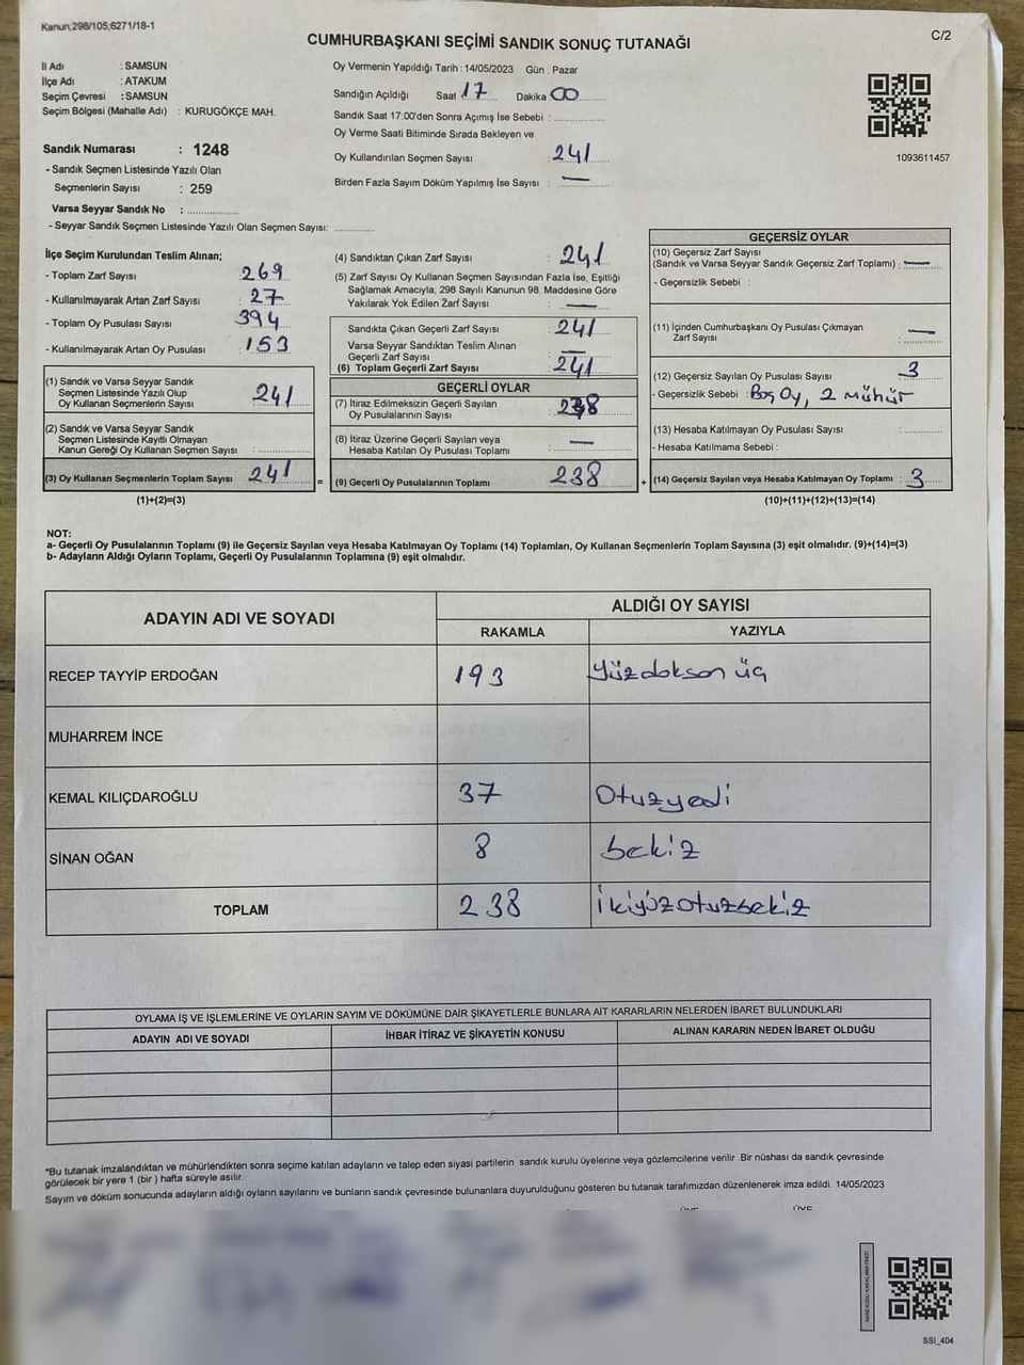 Kanun;298/105;6271/18-1
C/2
CUMHURBAŞKANI SEÇİMİ SANDIK SONUÇ TUTANAĞI
İl Adı : SAMSUN
İlçe Adı : ATAKUM
Seçim Çevresi : SAMSUN
Seçim Bölgesi (Mahalle Adı) : KURUGÖKÇE MAH.
Sandık Numarası : 1248
- Sandık Seçmen Listesinde Yazılı Olan
Seçmenlerin Sayısı : 259
Varsa Seyyar Sandık No :
- Seyyar Sandık Seçmen Listesinde Yazılı Olan Seçmen Sayısı:
Oy Vermenin Yapıldığı Tarih : 14/05/2023 Gün : Pazar
Sandığın Açıldığı Saat 17 Dakika 00
Sandık Saat 17:00'den Sonra Açımış İse Sebebi :
Oy Verme Saati Bitiminde Sırada Bekleyen ve
Oy Kullandırılan Seçmen Sayısı : 241
Birden Fazla Sayım Döküm Yapılmış İse Sayısı : —
1093611457
İlçe Seçim Kurulundan Teslim Alınan;
- Toplam Zarf Sayısı : 269
- Kullanılmayarak Artan Zarf Sayısı : 27
- Toplam Oy Pusulası Sayısı : 394
- Kullanılmayarak Artan Oy Pusulası : 153
(1) Sandık ve Varsa Seyyar Sandık
Seçmen Listesinde Yazılı Olup
Oy Kullanan Seçmenlerin Sayısı : 241
(2) Sandık ve Varsa Seyyar Sandık
Seçmen Listesinde Kayıtlı Olmayan
Kanun Gereği Oy Kullanan Seçmen Sayısı :
(3) Oy Kullanan Seçmenlerin Toplam Sayısı : 241
(1)+(2)=(3)
(4) Sandıktan Çıkan Zarf Sayısı : 241
(5) Zarf Sayısı Oy Kullanan Seçmen Sayısından Fazla İse, Eşitliği
Sağlamak Amacıyla, 298 Sayılı Kanunun 98. Maddesine Göre
Yakılarak Yok Edilen Zarf Sayısı : —
Sandıkta Çıkan Geçerli Zarf Sayısı : 241
Varsa Seyyar Sandıktan Teslim Alınan
Geçerli Zarf Sayısı : —
(6) Toplam Geçerli Zarf Sayısı : 241
GEÇERLİ OYLAR
(7) İtiraz Edilmeksizin Geçerli Sayılan
Oy Pusulalarının Sayısı : 238
(8) İtiraz Üzerine Geçerli Sayılan veya
Hesaba Katılan Oy Pusulası Toplamı : —
= (9) Geçerli Oy Pusulalarının Toplamı : 238
GEÇERSİZ OYLAR
(10) Geçersiz Zarf Sayısı
(Sandık ve Varsa Seyyar Sandık Geçersiz Zarf Toplamı) : —
- Geçersizlik Sebebi :
(11) İçinden Cumhurbaşkanı Oy Pusulası Çıkmayan
Zarf Sayısı : —
(12) Geçersiz Sayılan Oy Pusulası Sayısı : 3
- Geçersizlik Sebebi : Boş Oy, 2 Mühür
(13) Hesaba Katılmayan Oy Pusulası Sayısı :
- Hesaba Katılmama Sebebi :
+ (14) Geçersiz Sayılan veya Hesaba Katılmayan Oy Toplamı : 3
(10)+(11)+(12)+(13)=(14)
NOT:
a- Geçerli Oy Pusulalarının Toplamı (9) ile Geçersiz Sayılan veya Hesaba Katılmayan Oy Toplamı (14) Toplamları, Oy Kullanan Seçmenlerin Toplam Sayısına (3) eşit olmalıdır. (9)+(14)=(3)
b- Adayların Aldığı Oyların Toplamı, Geçerli Oy Pusulalarının Toplamına (9) eşit olmalıdır.
ADAYIN ADI VE SOYADI ALDIĞI OY SAYISI
RAKAMLA YAZIYLA
RECEP TAYYİP ERDOĞAN 193 Yüzdokson üç
MUHARREM İNCE
KEMAL KILIÇDAROĞLU 37 Otuzyedi
SİNAN OĞAN 8 Sekiz
TOPLAM 238 İkiyüzotuzsekiz
OYLAMA İŞ VE İŞLEMLERİNE VE OYLARIN SAYIM VE DÖKÜMÜNE DAİR ŞİKAYETLERLE BUNLARA AİT KARARLARIN NELERDEN İBARET BULUNDUKLARI
ADAYIN ADI VE SOYADI İHBAR İTİRAZ VE ŞİKAYETİN KONUSU ALINAN KARARIN NEDEN İBARET OLDUĞU
*Bu tutanak imzalandıktan ve mühürlendikten sonra seçime katılan adayların ve talep eden siyasi partilerin sandık kurulu üyelerine veya gözlemcilerine verilir. Bir nüshası da sandık çevresinde
görülecek bir yere 1 (bir) hafta süreyle asılır.
Sayım ve döküm sonucunda adayların aldığı oyların sayılarını ve bunların sandık çevresinde bulunanlara duyurulduğunu gösteren bu tutanak tarafımızdan düzenlenerek imza edildi. 14/05/2023
SSI_404